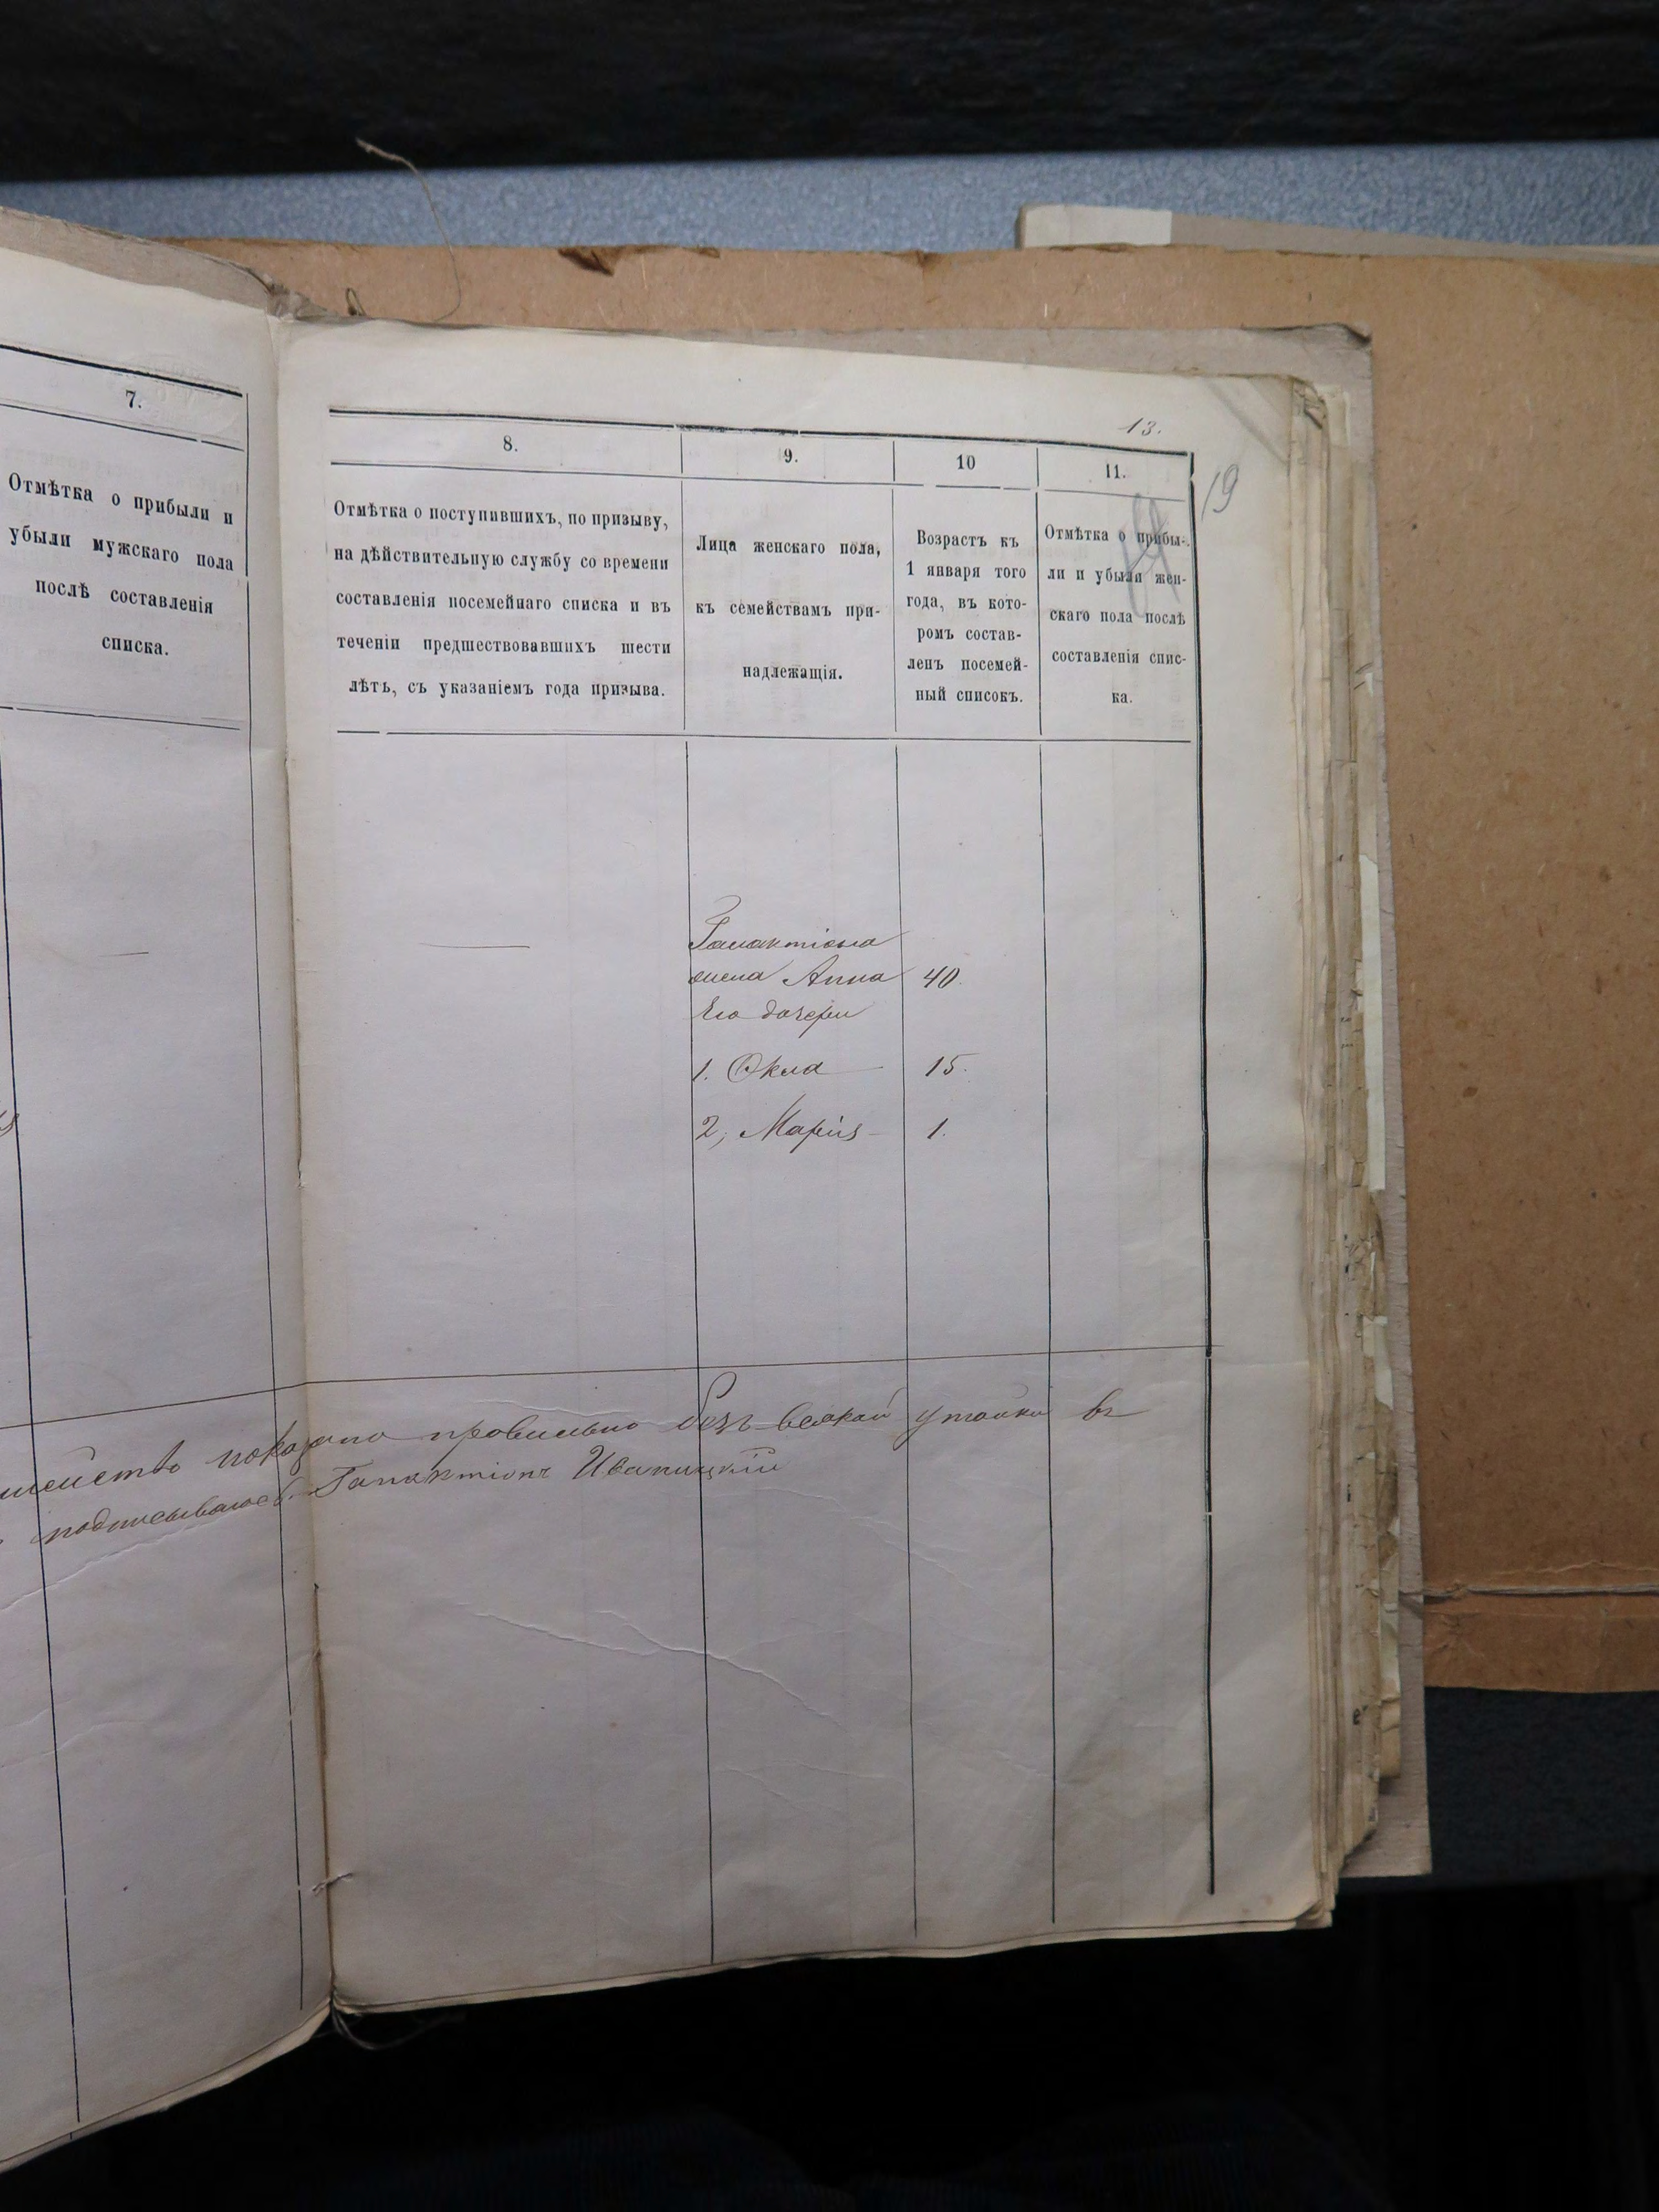 7.
Отмѣтка о прибыли и
убыли мужскаго пола
послѣ составленія
списка.
13.
19
8.
9.
10
11.
Отмѣтка о поступившихъ, по призыву,
на дѣйствительную службу со времени
составленія посемейнаго списка и въ
теченіи предшествовавшихъ шести
лѣтъ, съ указаніемъ года призыва.
Лица женскаго пола,
къ семействамъ при-
надлежащія.
Возрастъ къ
1 января того
года, въ кото-
ромъ состав-
ленъ посемей-
ный списокъ.
Отмѣтка о прибы-
ли и убыли жен-
скаго пола послѣ
составленія спис-
ка.
Галактіона
жена Анна 40.
Его дочери
1. Окла 15.
2, Марія 1.
показано правильно безъ всякой утайки въ
подписываюсь Галактіонъ Иваницкій